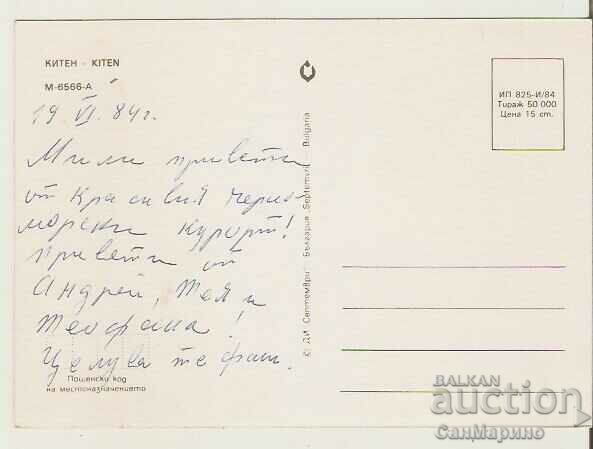 КИТЕН - KITEN
М-6566-А
19 VI 84г.
Мили привети
от красивия черно-
морски курорт!
привети от
Андрей, Тея и
Теофана!
Целува те
Пощенски код
на местоназначението
© ДИ Септември България „Septemvri" Bulgaria
ИП 825-И/84
Тираж 50 000
Цена 15 ст.
BALKAN
auction
СанМарино